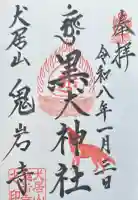 奉拝
令和八年一月二日
黒犬神社
犬居山
鬼岩寺